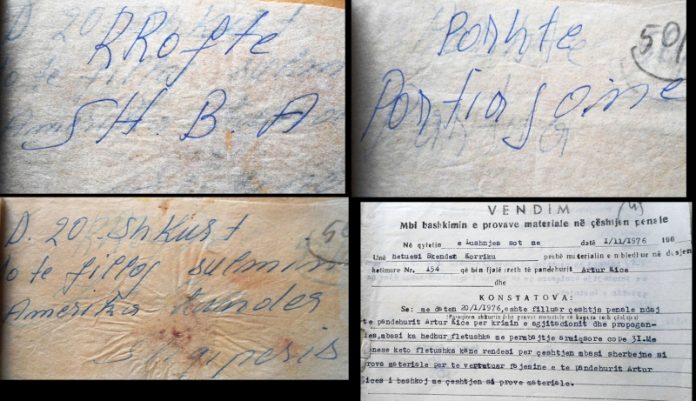 RRofte
SH. B. A
Poshte
Partia jone
50
D. 20. Shkurt
do te filloj sulmin
Amerika kunder
Shqiperis
VENDIM
(4)
Mbi bashkimin e provave materiale në çështjen penale
Në qytetin e Lushnjes sot me datë 1/11/1976
Unë hetuesi Skender Korriku peshë materialin e mbledhur në dosjen
hetimore Nr. 154 që bën fjalë rreth të pandehurit Artur Kice
dhe
KONSTATOVA:
Se: me daten 20/1/1976, eshte filluar çeshtja penale ndaj
te pandehurit Artur Kice per krimin e agjitacionit dhe propagan-
des, mbasi ka hedhur fletushka me permbajtje armiqsore cope 31. Me
qenese keto fletushka kane rendesi per çeshtjen mbasi sherbejne si
prova materiale per te vertetuar fajesine e te pandehurit Artur
Kices i bashkoj me çeshtjen si prove materiale.